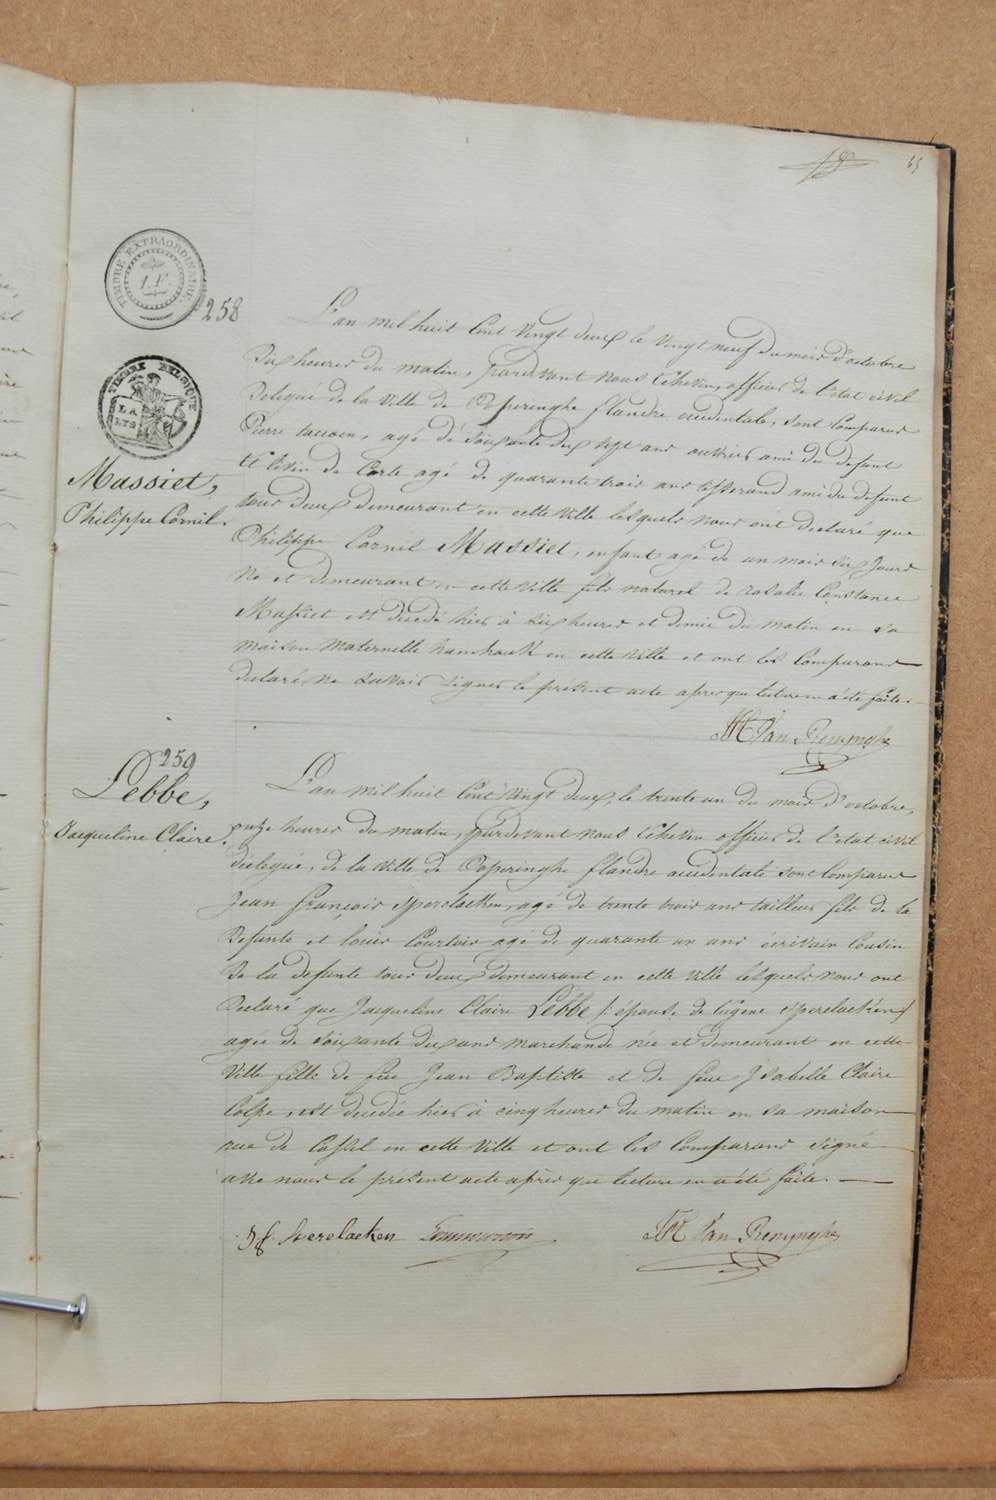 65
TIMBRE EXTRAORDINAIRE.
258
TIMBRE BELGIQUE
Massiet,
Philippe Cornil.
L'an mil huit Cent vingt deux le vingt neuf du mois d'octobre
dix heures du matin, pardevant nous Echevin, officier de l'état civil
Delegué de la ville de Poperinghe flandre occidentale, sont Comparus
Pierre , agé de soixante dix sept ans ouvrier ami du defunt
et de Corte agé de quarante trois ans tisserand ami du defunt
tous deux demeurant en cette ville lesquels nous ont declaré que
Philippe Cornil Massiet, enfant agé de un mois six jours
né et demeurant en cette ville fils naturel de rosalie Constance
Massiet est decedé hier à six heures et demie du matin en sa
maison maternelle en cette ville et ont les Comparans
declaré ne savoir signer le présent acte apres que lecture en a été faite.
Van Renynghe
259
Lebbe,
Jacqueline Claire.
L'an mil huit Cent vingt deux, le trente un du mois d'octobre,
onze heures du matin, pardevant nous Echevin officier de l'etat civil
délegué, de la ville de Poperinghe flandre occidentale sont Comparus
Jean françois Sperelaeken, agé de trente trois ans tailleur fils de la
defunte et louis Courtois agé de quarante un ans écrivain Cousin
de la defunte tous deux demeurant en cette ville lesquels nous ont
Declaré que Jacqueline Claire Lebbe /: épouse de Eugene Sperelaeken/
agée de soixante dix ans marchande née et demeurant en cette
ville fille de feu Jean Baptiste et de feue Isabelle Claire
, est decedée hier à cinq heures du matin en sa maison
rue de Cassel en cette ville et ont les Comparans signé
avec nous le présent acte après que lecture en a été faite.
Jf Sperelaeken Van Renynghe